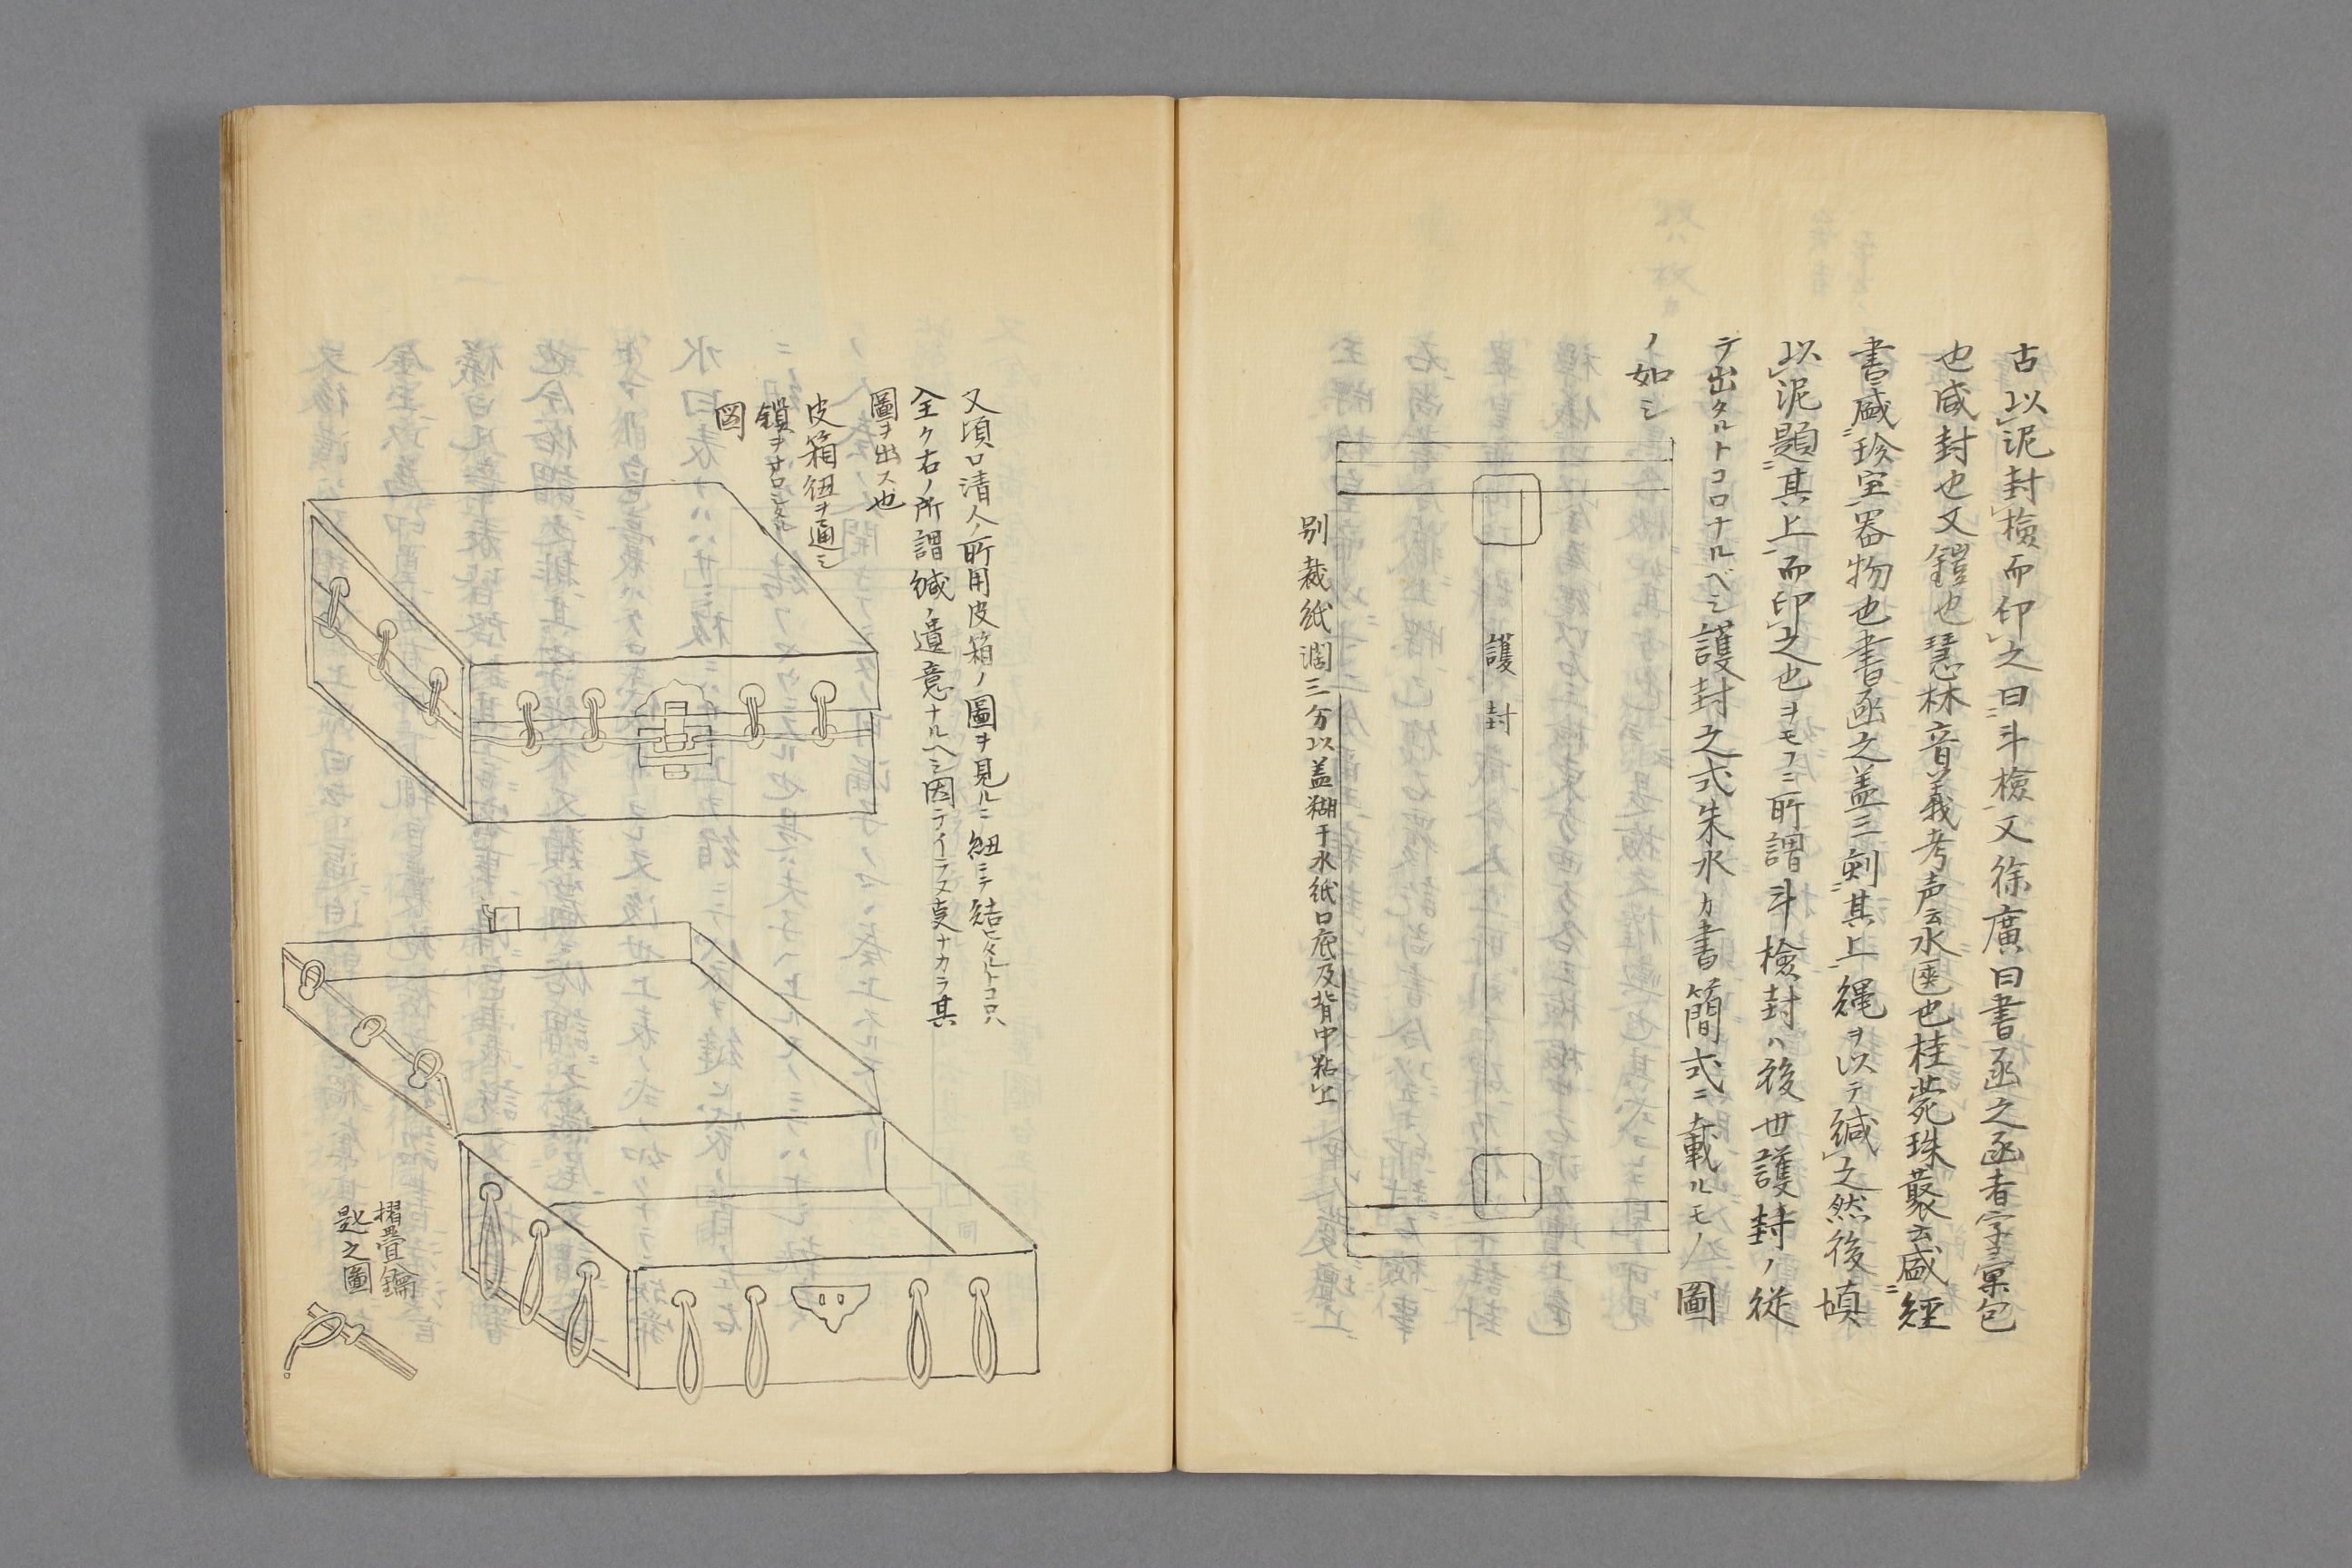 古以泥封檢而印之曰斗檢又徐廣曰書函之函者字彙包
也咸封也又鎧也慧林音義考声云水匧也桂菀珠叢云盛経
書盛珍宝器物也書函之盖三刻其上縄ヲ以テ緘之然後塡
以泥題其上而印之也ヲモフニ所謂斗檢封ハ後世護封ノ従
テ出タルトコロナルベシ護封之式朱水カ書簡式ニ載ルモノ圖
ノ如シ
護封
別裁紙濶三分以盖糊于水紙口底及背中粘上
又項口清人ノ所用皮箱ノ圖ヲ見ルニ紐ニテ結ヒタルトコロハ
全ク右ノ所謂緘ノ遺意ナルヘシ因テイラヌ事ナカラ其
圖ヲ出ス也
皮箱紐ヲ通シ
鎖ヲオロシタル
図
摺疊鑰
匙之圖